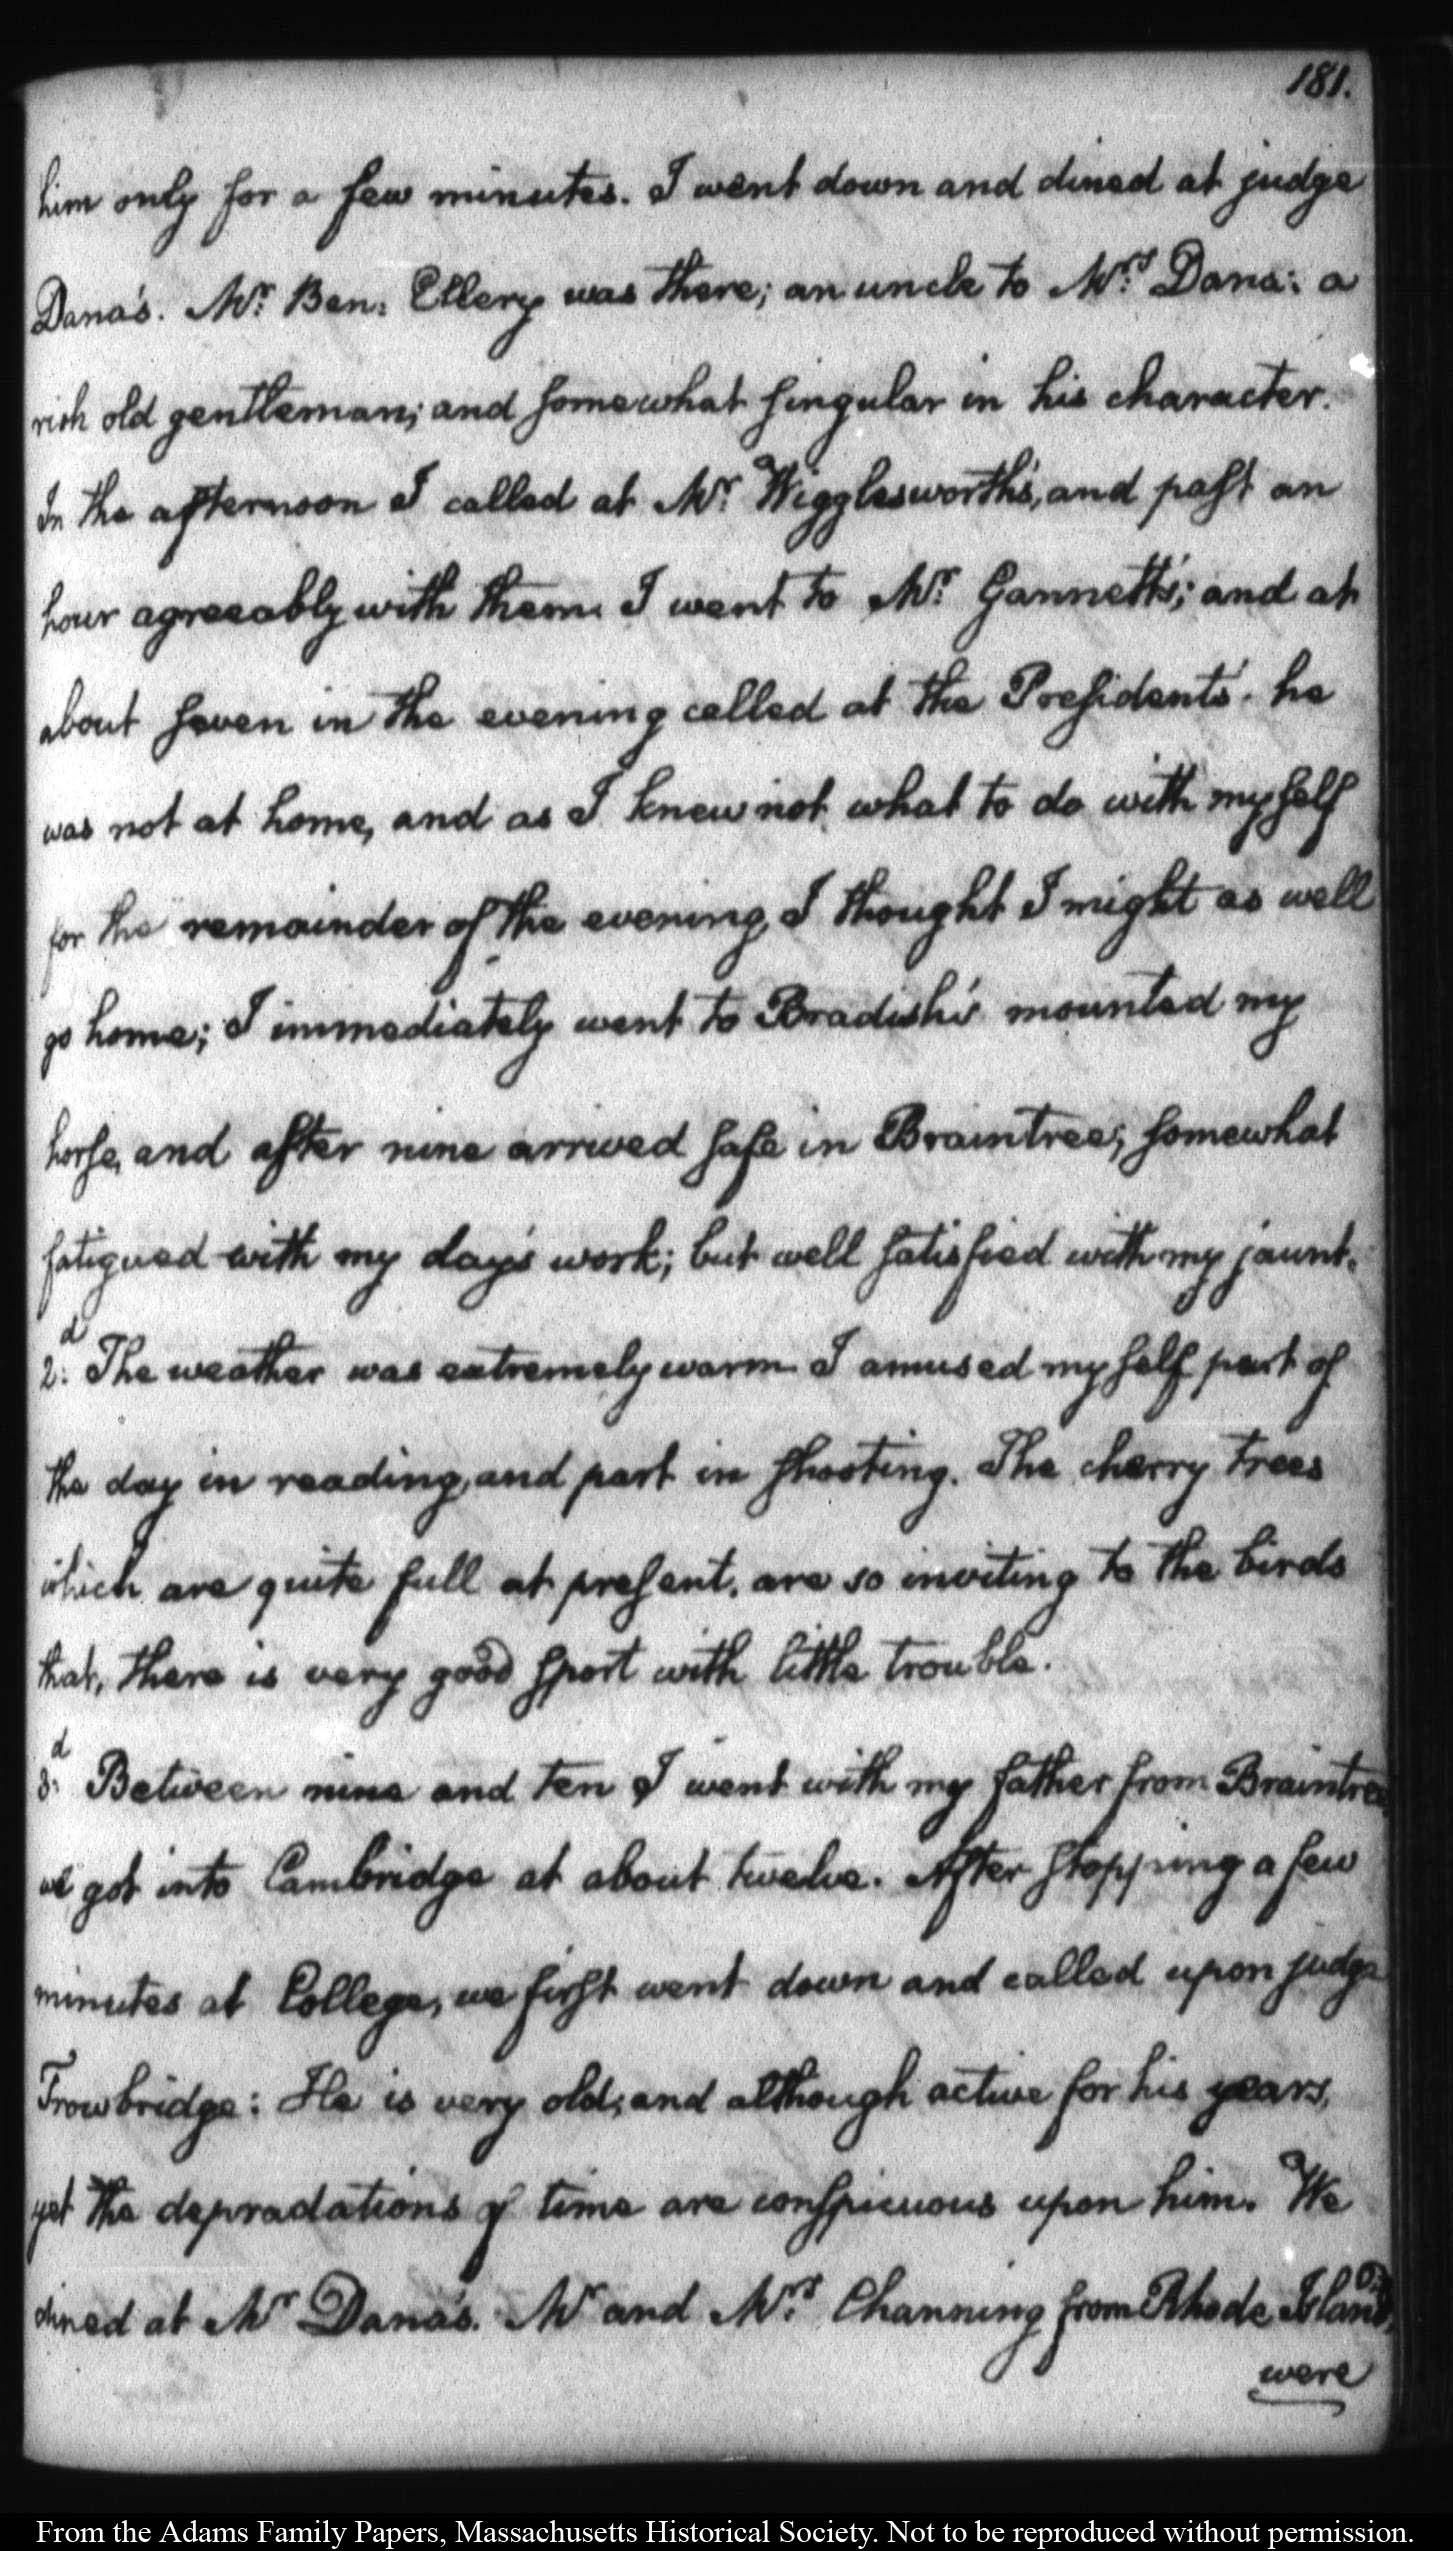 181.
him only for a few minutes. I went down and dined at judge
Dana's. Mr. Ben: Ellery was there; an uncle to Mrs. Dana: a
rich old gentleman; and somewhat singular in his character.
In the afternoon I called at Mr. Wigglesworth's, and past an
hour agreeably with them. I went to Mr. Gannett's; and at
about seven in the evening called at the President's. he
was not at home, and as I knew not what to do with myself
for the remainder of the evening, I thought I might as well
go home; I immediately went to Bradish's mounted my
horse, and after nine arrived safe in Braintree; somewhat
fatigued with my day's work; but well satisfied with my jaunt.
2:d The weather was extremely warm I amused myself part of
the day in reading, and part in shooting. The cherry trees
which are quite full at present, are so inviting to the birds
that, there is very good sport with little trouble.
3:d Between nine and ten I went with my father from Braintree
we got into Cambridge at about twelve. After stopping a few
minutes at College, we first went down and called upon judge
Trowbridge: He is very old, and although active for his years,
yet the depradations of time are conspicuous upon him. We
dined at Mr Dana's. Mr and Mrs. Channing from Rhode Island,
were
From the Adams Family Papers, Massachusetts Historical Society. Not to be reproduced without permission.